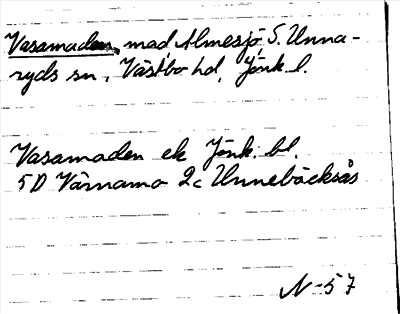 Vasamaden, mad, Almesjö, S. Unna-
ryds sn, Västbo hd, Jönk. l.
Vasamaden ek Jönk. bl.
5D Värnamo 2c Unnebäcksås
N-57